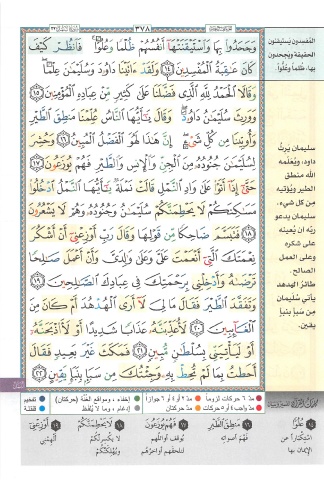 ٣٧٨
وَجَحَدُوا۟ بِهَا وَٱسْتَيْقَنَتْهَآ أَنفُسُهُمْ ظُلْمًا وَعُلُوًّا ۚ فَٱنظُرْ كَيْفَ
كَانَ عَٰقِبَةُ ٱلْمُفْسِدِينَ ١٤ وَلَقَدْ ءَاتَيْنَا دَاوُۥدَ وَسُلَيْمَٰنَ عِلْمًا ۖ
وَقَالَا ٱلْحَمْدُ لِلَّهِ ٱلَّذِى فَضَّلَنَا عَلَىٰ كَثِيرٍ مِّنْ عِبَادِهِ ٱلْمُؤْمِنِينَ ١٥
وَوَرِثَ سُلَيْمَٰنُ دَاوُۥدَ ۖ وَقَالَ يَٰٓأَيُّهَا ٱلنَّاسُ عُلِّمْنَا مَنطِقَ ٱلطَّيْرِ
وَأُوتِينَا مِن كُلِّ شَىْءٍ ۖ إِنَّ هَٰذَا لَهُوَ ٱلْفَضْلُ ٱلْمُبِينُ ١٦ وَحُشِرَ
لِسُلَيْمَٰنَ جُنُودُهُۥ مِنَ ٱلْجِنِّ وَٱلْإِنسِ وَٱلطَّيْرِ فَهُمْ يُوزَعُونَ ١٧
حَتَّىٰٓ إِذَآ أَتَوْا۟ عَلَىٰ وَادِ ٱلنَّمْلِ قَالَتْ نَمْلَةٌ يَٰٓأَيُّهَا ٱلنَّمْلُ ٱدْخُلُوا۟
مَسَٰكِنَكُمْ لَا يَحْطِمَنَّكُمْ سُلَيْمَٰنُ وَجُنُودُهُۥ وَهُمْ لَا يَشْعُرُونَ
١٨ فَتَبَسَّمَ ضَاحِكًا مِّن قَوْلِهَا وَقَالَ رَبِّ أَوْزِعْنِىٓ أَنْ أَشْكُرَ
نِعْمَتَكَ ٱلَّتِىٓ أَنْعَمْتَ عَلَىَّ وَعَلَىٰ وَٰلِدَىَّ وَأَنْ أَعْمَلَ صَٰلِحًا
تَرْضَىٰهُ وَأَدْخِلْنِى بِرَحْمَتِكَ فِى عِبَادِكَ ٱلصَّٰلِحِينَ ١٩
وَتَفَقَّدَ ٱلطَّيْرَ فَقَالَ مَا لِىَ لَآ أَرَى ٱلْهُدْهُدَ أَمْ كَانَ مِنَ
ٱلْغَآئِبِينَ ٢٠ لَأُعَذِّبَنَّهُۥ عَذَابًا شَدِيدًا أَوْ لَأَا۟ذْبَحَنَّهُۥٓ
أَوْ لَيَأْتِيَنِّى بِسُلْطَٰنٍ مُّبِينٍ ٢١ فَمَكَثَ غَيْرَ بَعِيدٍ فَقَالَ
أَحَطتُ بِمَا لَمْ تُحِطْ بِهِۦ وَجِئْتُكَ مِن سَبَإٍۭ بِنَبَإٍ يَقِينٍ ٢٢
المفسدون يستيقنون
الحقيقة ويجحدون
بها، ظلما وعلوا.
سليمان يرث
داود، ويعلمه
الله منطق
الطير ويؤتيه
من كل شيء.
سليمان يدعو
ربه أن يعينه
على شكره
وعلى العمل
الصالح.
طائر الهدهد
يأتي سليمان
من سبأ بنبأ
يقين.
مد ٦ حركات لزوماً مد ٢ أو ٤ أو ٦ جوازاً إخفاء، ومواقع الغنة (حركتان) تفخيم
مد واجب ٤ أو ٥ حركات مد حركتان إدغام، وما لا يلفظ قلقلة
١٤ عُلُوًّا
استكباراً عن
الإيمان بها
١٦ مَنطِقَ ٱلطَّيْرِ
فهم أصواته
١٧ فَهُمْ يُوزَعُونَ
يوقف أوائلهم
لتلحقهم أواخرهم
١٨ لَا يَحْطِمَنَّكُمْ
لا يكسرنكم
ويهلكنكم
١٩ أَوْزِعْنِىٓ
ألهمني